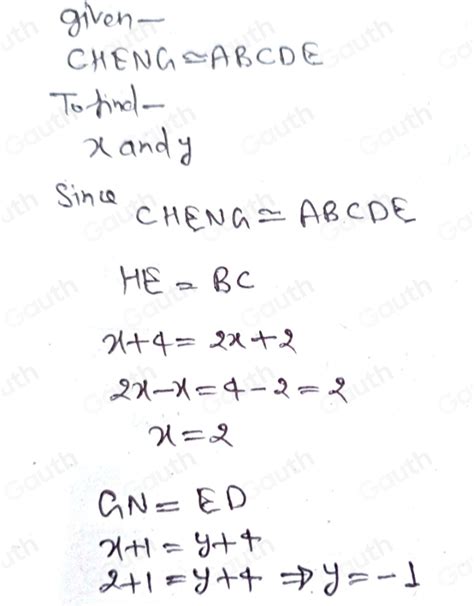 given-
CHENG≅ABCDE
To find-
x and y
Since CHENG ≅ ABCDE
HE = BC
x+4 = 2x+2
2x-x = 4-2 = 2
x = 2
GN = ED
x+1 = y+4
2+1 = y+4 ⇒ y = -1